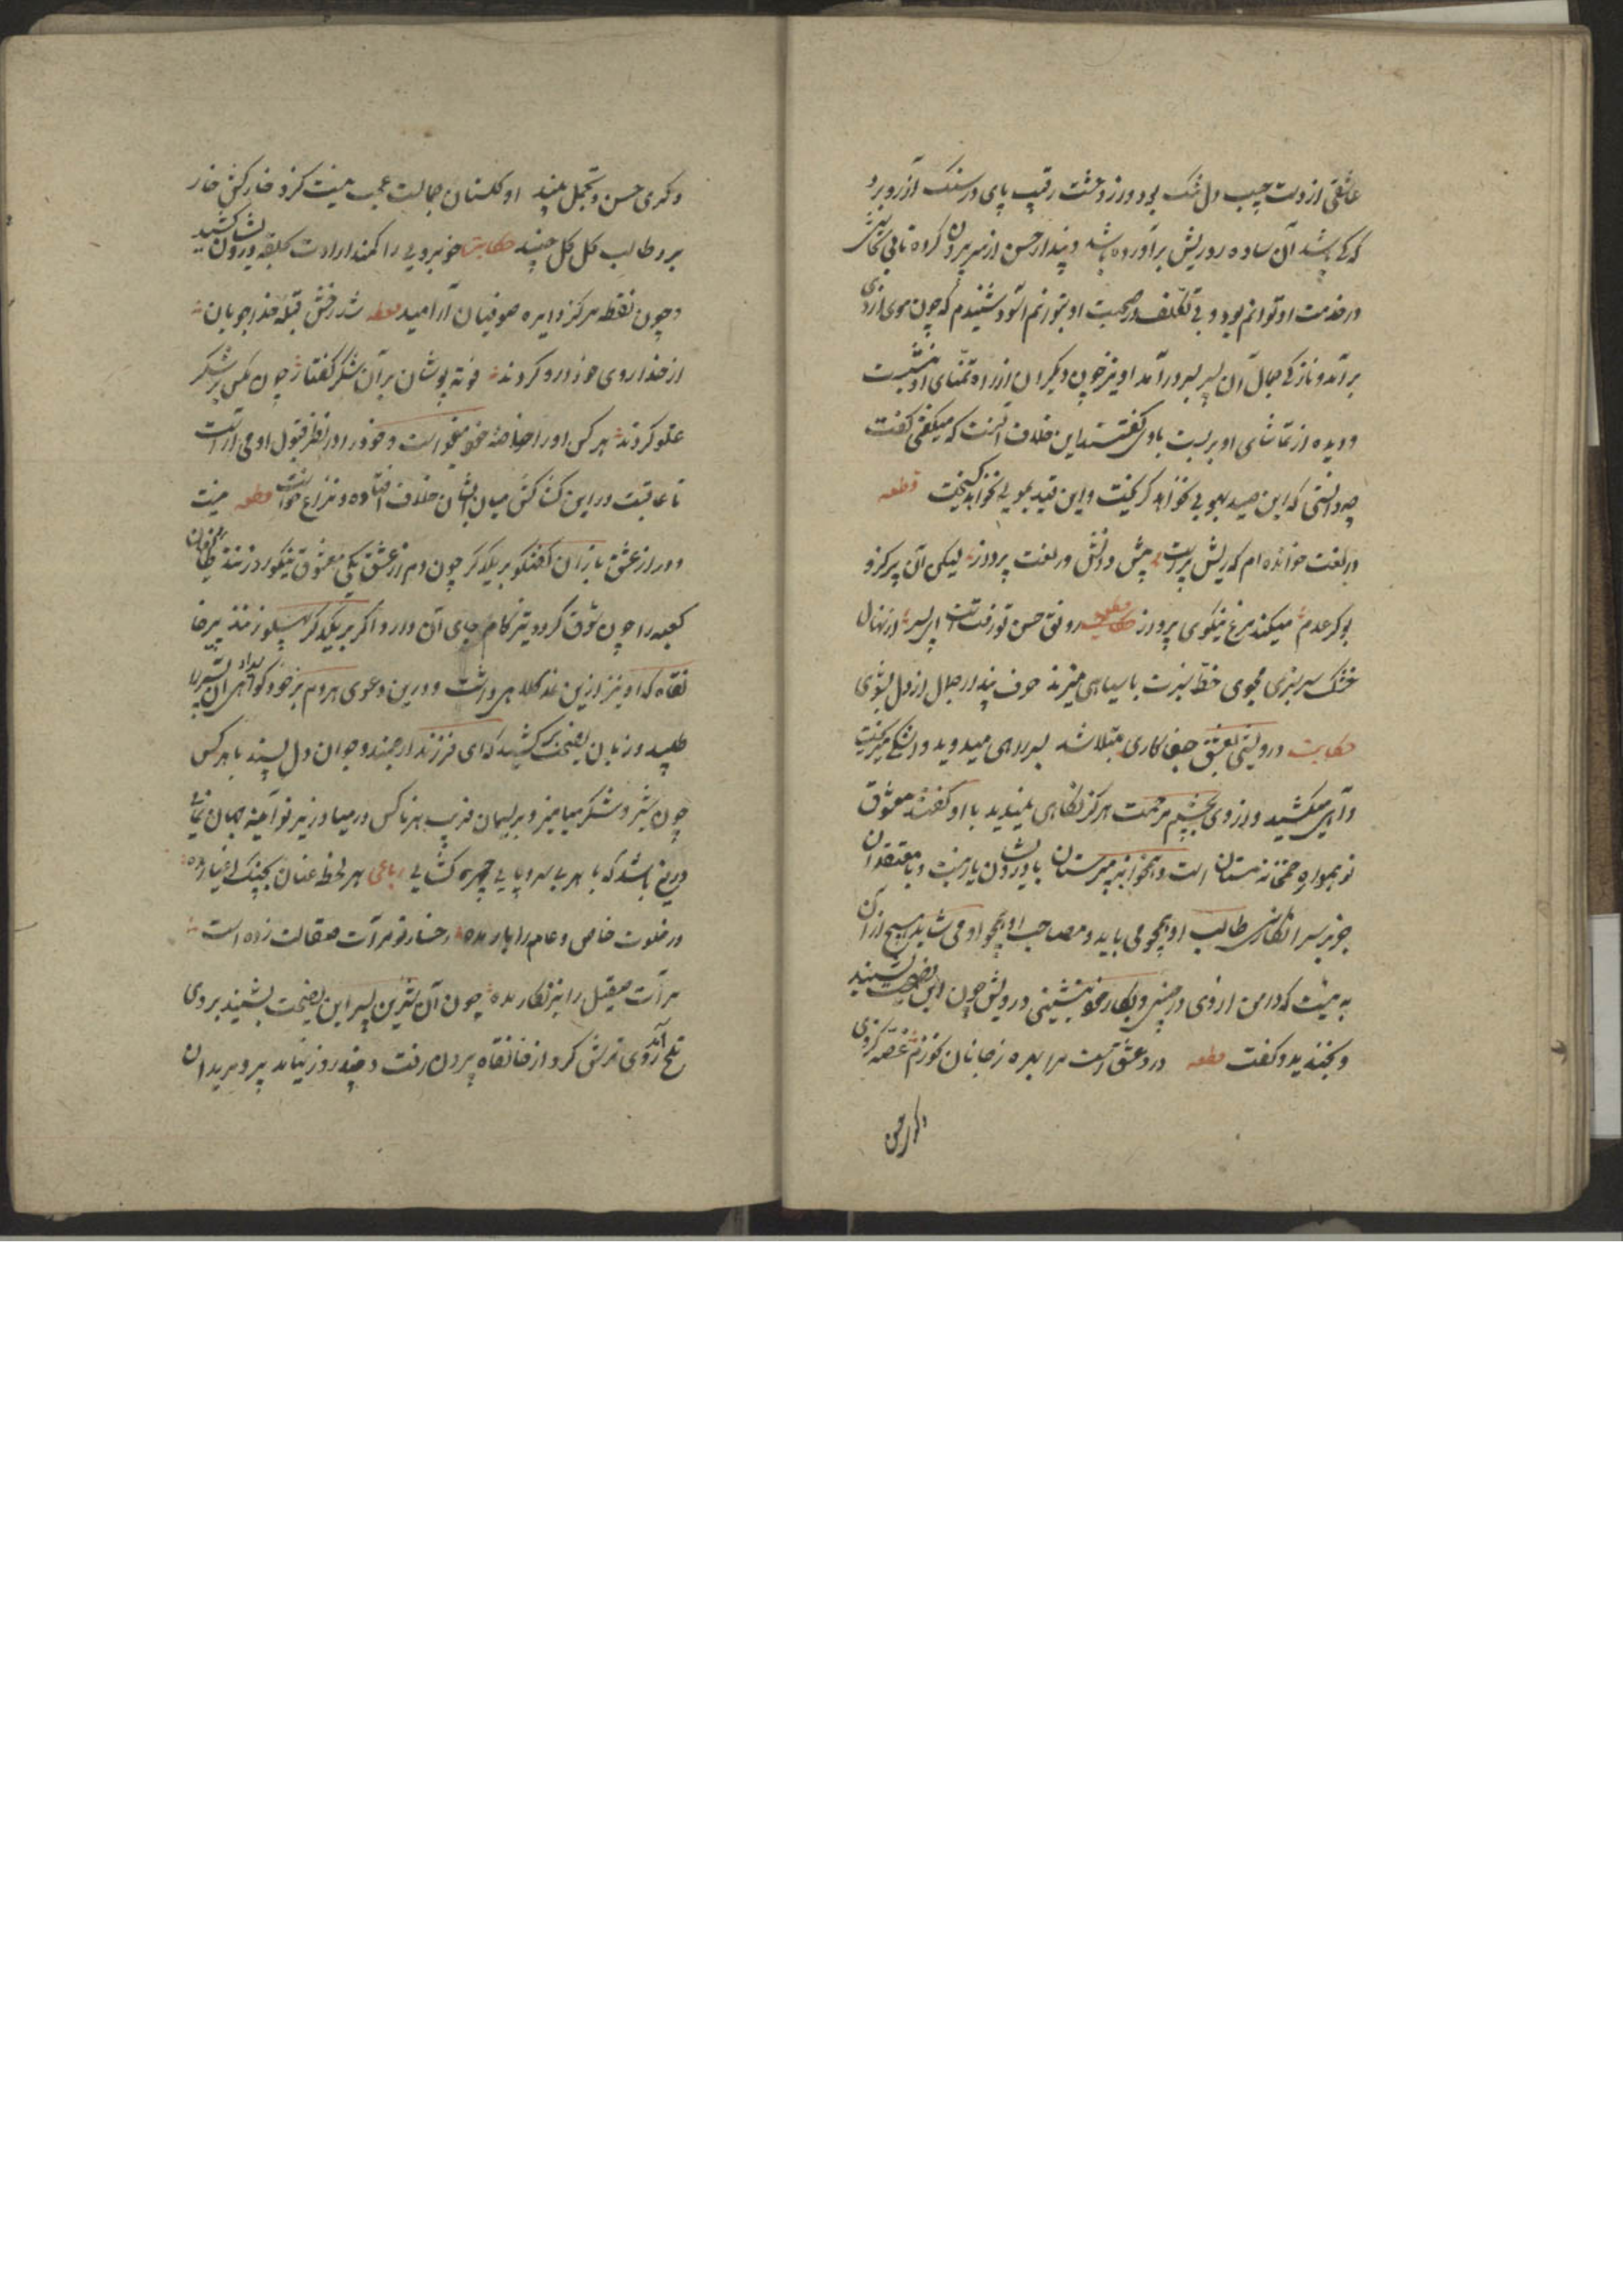 عاشقی از دست چپ دل تنگ بود و از وحشت رقیب پای در سنک آرزو برد
که کی باشد آن ساده رو ریش برآورده باشد و پندار حسن از سر بیرون کرده تا بی تحاشی
در خدمت او توانم بود و بی تکلف در صحبت او بتوانم آسود شنیدم که چون موی از روی
برآمد و نازکی جمال آن پسر بسر درآمد او نیز چون دیگران از راه تمنای او بنشست
و دیده از تماشای او بربست با وی گفتند این خلاف آنست که میگفتی گفت
چه دانستی که این صید بهویی بخواهد گریخت و این قید بمویی بخواهد گسیخت قطعه
در لغت خوانده ام که ریش پرست پیش دانش در لغت پرداز لیکن آن پر کزو
بوکر عدم میکند مرغ نیکوی پرواز قطعه رونق حسن تو رفتست ای پسر از نهال
خشک سرسبزی مجوی خط سبزت با سیاهی میزند حرف پندار جمال از دل بشوی
حکایت درویشی بعشق جفا کاری مبتلا شد بسر راهی میدوید و اشکی میریخت
و آهی میکشید و از وی بچشم مرحمت هرگز نگاهی نمیدید با او گفتند معشوق
تو همواره همخانه مستانست و همخوابه می پرستان با درویشان یار نیست و با معتقدان
جز بر سر انکار نی طالب او همچو می باید و مصاحب او همچو او می شاید هیچ از آن
به نیست که دامن از وی درچینی و بکار خود بنشینی درویش چون این نصیحت بشنید
و بخندید و گفت قطعه درد عشقست مرا بهره ز جانان نخورم غصه گر وی
دگری حسن و تجمل بیند او گلستان جمالست عجب نیست کزو خار کش خار
برد طالب گل گل چیند حکایت خوبرویی را کمند ارادت بحلقه درویشان کشید
و چون نقطه مرکز دایره صوفیان آرامید قطعه شد رخش قبله خداجویان
از خدا روی خود درو کردند فوته پوشان بر آن شکر گفتار چون مگس بر شکر
غلو کردند هر کس او را خاصه خود میخواست و خود را در نظر قبول او می آراست
تا عاقبت در این کشاکش میان ایشان خلاف افتاده و نزاع خواست قطعه نیست
دور از عشق بازان گفتگو بر یکدگر چون دم از عشق یکی معشوق نیکو رو زنند طایفان
کعبه را چون شوق گردد تیز گام جای آن دارد اگر بر یکدگر پهلو زنند پیر خا
نقاه که او نیز ازین نمد کلاهی داشت و درین دعوی هر دم بر خود گواهی آن پسر را
طلبید و زبان نصیحت کشید که ای فرزند ارجمند و جوان دل پسند با هر کس
چون شیر و شکر میامیز و بریسمان فریب هر ناکس در میاویز تو آینه جهان نمایی
دریغ باشد که با هر بی سر و پایی چهره گشایی رباعی هر لحظه عنان بچنگ اغیار مده
در خلوت خاص و عام را بار مده رخسار تو مرآت صقالت زده است
مرآت صیقل را بزنگار مده چون آن شیرین پسر این نصیحت بشنید بر وی
تلخ آمد روی ترش کرد از خانقاه بیرون رفت و چند روز نیامد پیر و مریدان